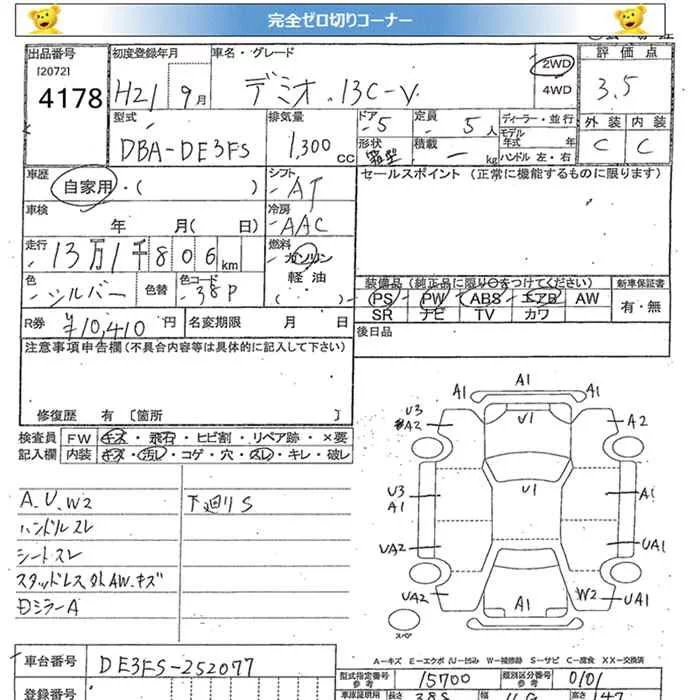 完全ゼロ切りコーナー
出品番号 初度登録年月 車名・グレード 評価点
120721
4178 H21 9月 デミオ・13C-V 2WD 4WD 3.5
型式 排気量 ドア 定員 ディーラー・並行 外装 内装
DBA-DE3FS 1,300cc 5 5人 モデル年式 年 C C
形状 箱型 積載 - kg ハンドル 左・右
車歴 シフト セールスポイント(正常に機能するものに限ります)
自家用・( ) AT
車検 冷房
年 月(日) AAC
走行 燃料
13万1千806km ガソリン
軽油
( )
色 シルバー 色替 色コード 38P
装備品(純正品に限り○をつけてください) 新車保証書
PS PW ABS エアB AW 有・無
SR ナビ TV カワ
R券 ¥10,410円 名変期限 月 日 後日品
注意事項申告欄(不具合内容等は具体的に記入して下さい)
修復歴 有〔箇所 〕
検査員 FW キズ・飛石・ヒビ割・リペア跡・×要
記入欄 内装 キズ・汚レ・コゲ・穴・スレ・キレ・破レ
A.U.W2 下廻りS
ハンドルスレ
シートスレ
スタッドレス外AW.キズ
Dミラー A
A1
A1 A1
U3 U1 A2
A2
U3 U1 A1
A1
UA2 UA1
UA2 A1 W2 UA1
スペア
A-キズ E-エクボ U-凹み W-補修跡 S-サビ C-腐食 XX-交換済
車台番号 DE3FS-252077
型式指定番号 参考 15700 類別区分番号 参考 0101
登録番号 車庫証明用 長さ 388 幅 高さ 147